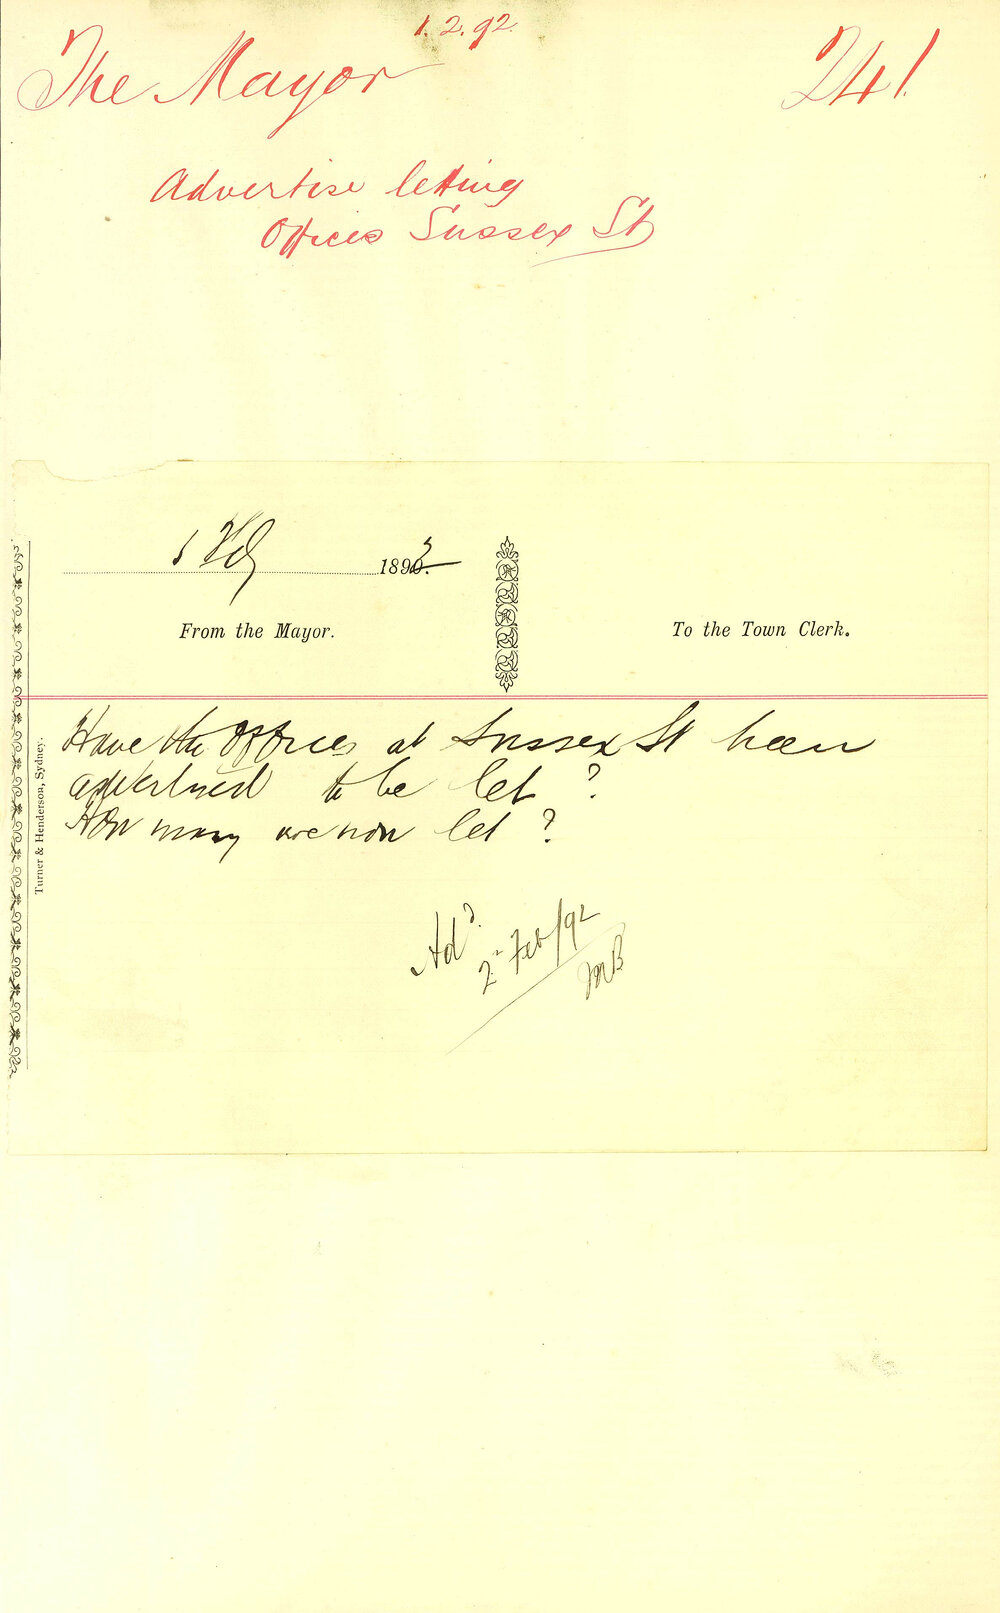 1.2.92.
The Mayor
241.
Advertise letting
Offices Sussex St
1 Feby 1892.
From the Mayor.
To the Town Clerk.
Have the Offices at Sussex St been
advertised to be let?
How many are now let?
Ad^d.
2^n Feb/92
MB
Turner & Henderson, Sydney.